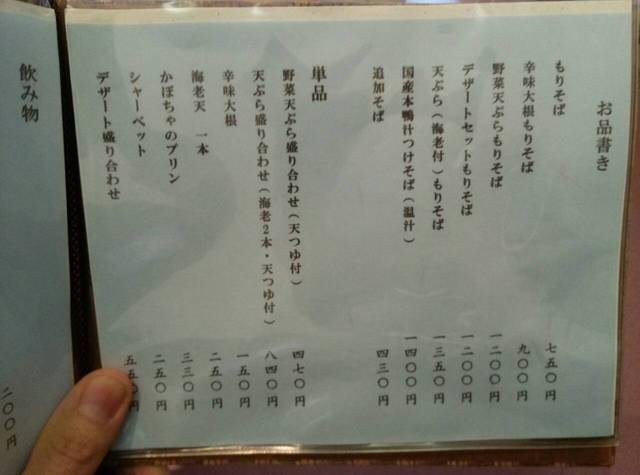 お品書き
もりそば 七五〇円
辛味大根もりそば 九〇〇円
野菜天ぷらもりそば 一二〇〇円
デザートセットもりそば 一二〇〇円
天ぷら(海老付)もりそば 一三五〇円
国産本鴨汁つけそば(温汁) 一四〇〇円
追加そば 四三〇円
単品
野菜天ぷら盛り合わせ(天つゆ付) 四七〇円
天ぷら盛り合わせ(海老2本・天つゆ付) 八四〇円
辛味大根 一五〇円
海老天 一本 二五〇円
かぼちゃのプリン 三三〇円
シャーベット 二五〇円
デザート盛り合わせ 五五〇円
飲み物
二〇〇円